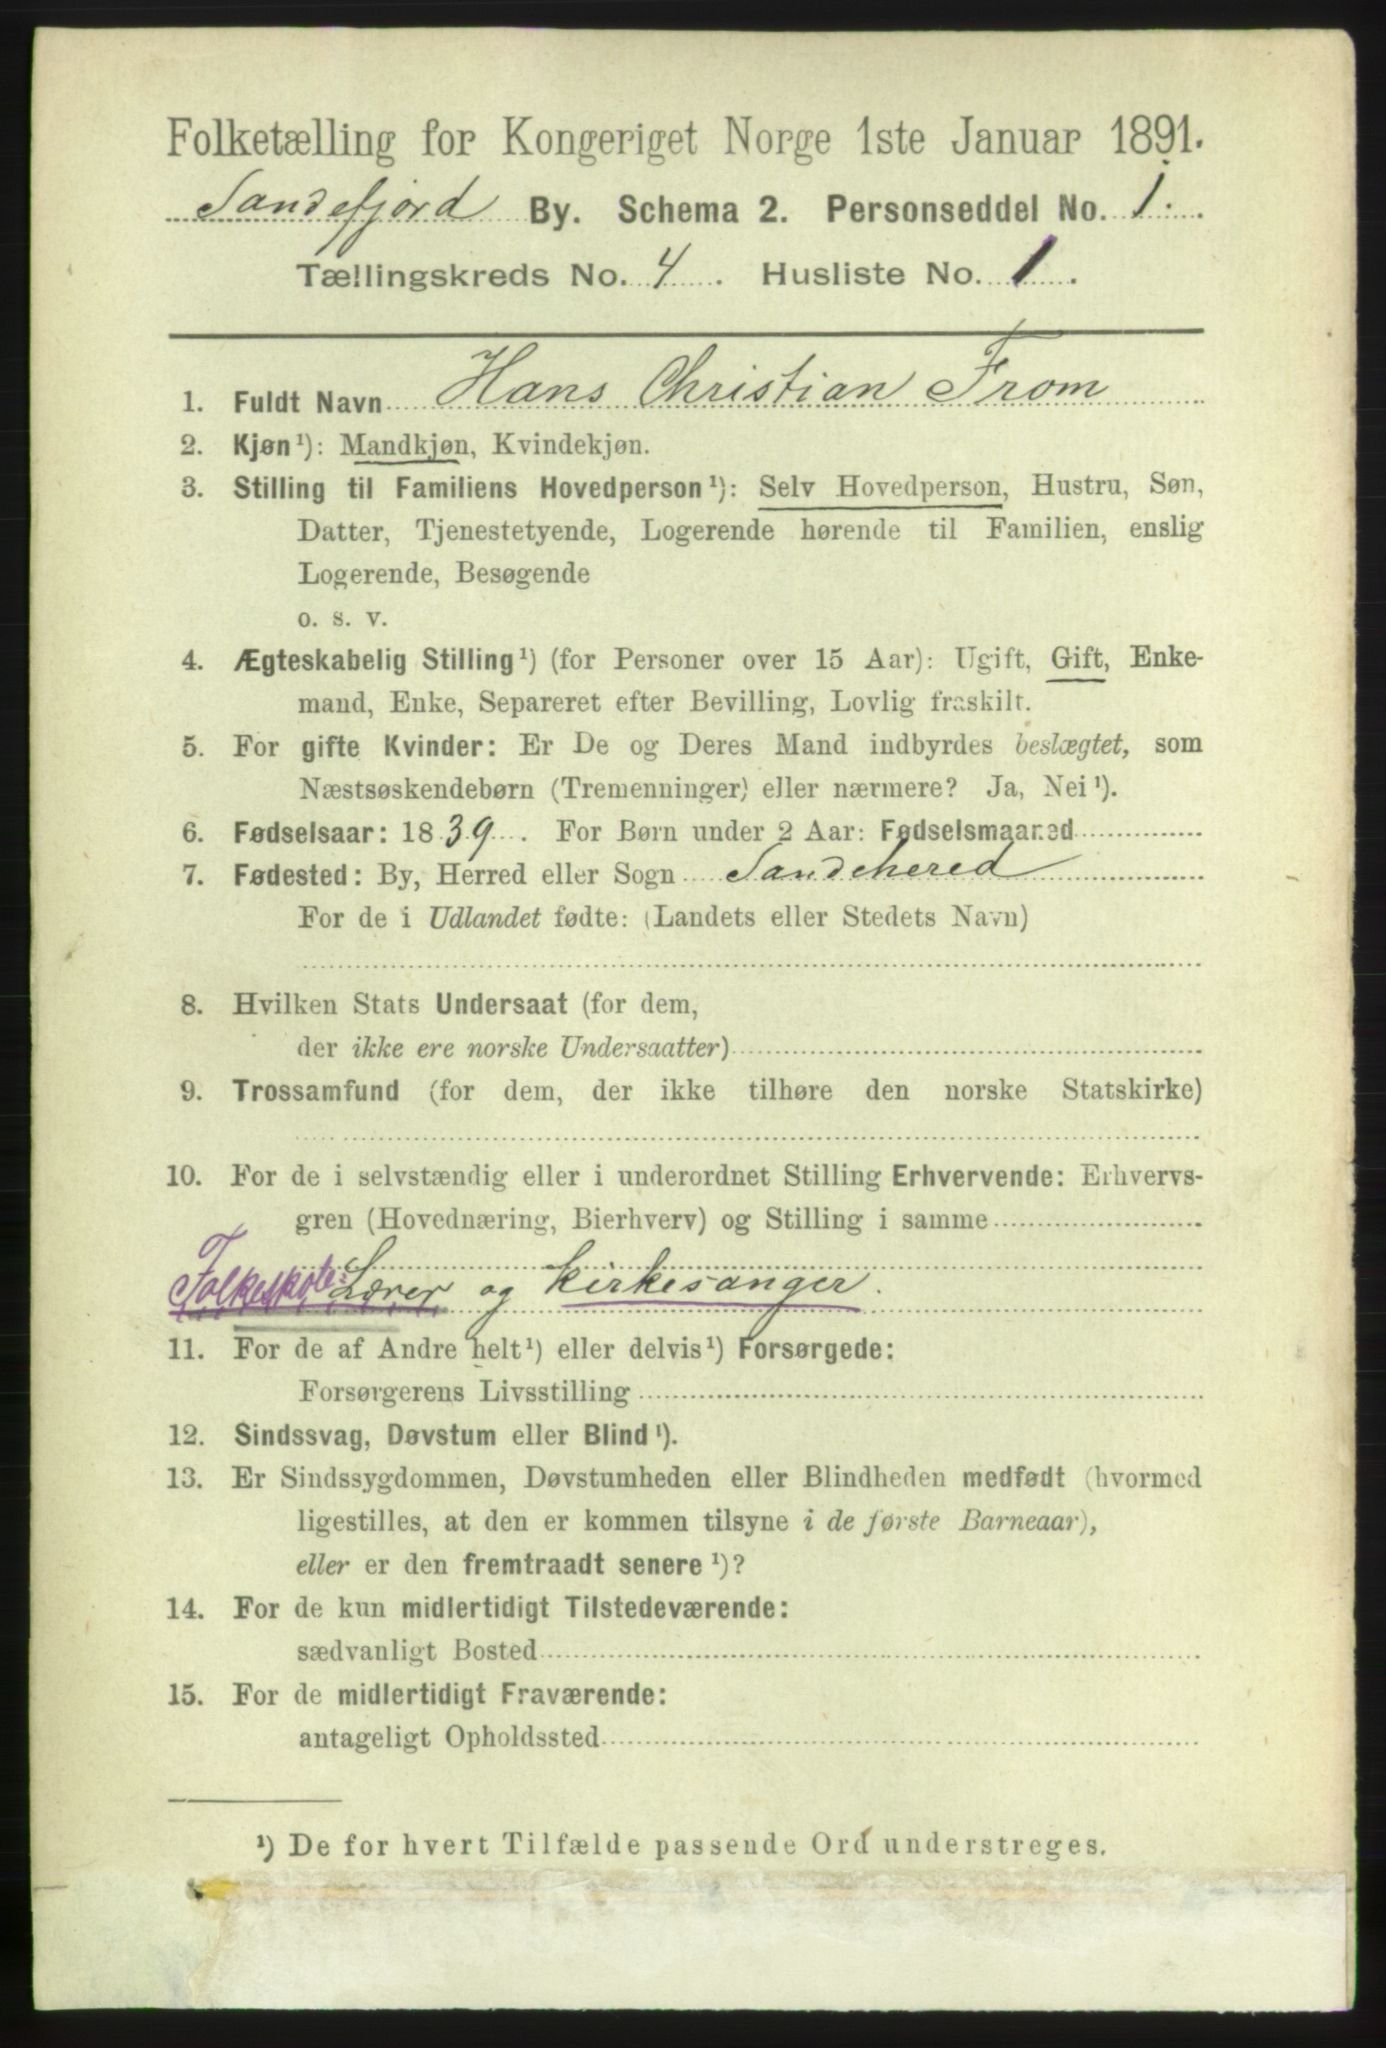 Folketælling for Kongeriget Norge 1ste Januar 1891.
Sandefjord By. Schema 2. Personseddel No. 1.
Tællingskreds No. 4. Husliste No. 1.
1. Fuldt Navn Hans Christian From
2. Kjøn¹): Mandkjøn, Kvindekjøn.
3. Stilling til Familiens Hovedperson¹): Selv Hovedperson, Hustru, Søn,
Datter, Tjenestetyende, Logerende hørende til Familien, enslig
Logerende, Besøgende
o. s. v.
4. Ægteskabelig Stilling¹) (for Personer over 15 Aar): Ugift, Gift, Enke-
mand, Enke, Separeret efter Bevilling, Lovlig fraskilt.
5. For gifte Kvinder: Er De og Deres Mand indbyrdes beslægtet, som
Næstsøskendebørn (Tremenninger) eller nærmere? Ja, Nei¹).
6. Fødselsaar: 1839. For Børn under 2 Aar: Fødselsmaaned
7. Fødested: By, Herred eller Sogn Sandehered
For de i Udlandet fødte: (Landets eller Stedets Navn)
8. Hvilken Stats Undersaat (for dem,
der ikke ere norske Undersaatter)
9. Trossamfund (for dem, der ikke tilhøre den norske Statskirke)
10. For de i selvstændig eller i underordnet Stilling Erhvervende: Erhvervs-
gren (Hovednæring, Bierhverv) og Stilling i samme
Folkeskole: Lærer og kirkesanger.
11. For de af Andre helt¹) eller delvis¹) Forsørgede:
Forsørgerens Livsstilling
12. Sindssvag, Døvstum eller Blind¹).
13. Er Sindssygdommen, Døvstumheden eller Blindheden medfødt (hvormed
ligestilles, at den er kommen tilsyne i de første Barneaar),
eller er den fremtraadt senere¹)?
14. For de kun midlertidigt Tilstedeværende:
sædvanligt Bosted
15. For de midlertidigt Fraværende:
antageligt Opholdssted
¹) De for hvert Tilfælde passende Ord understreges.